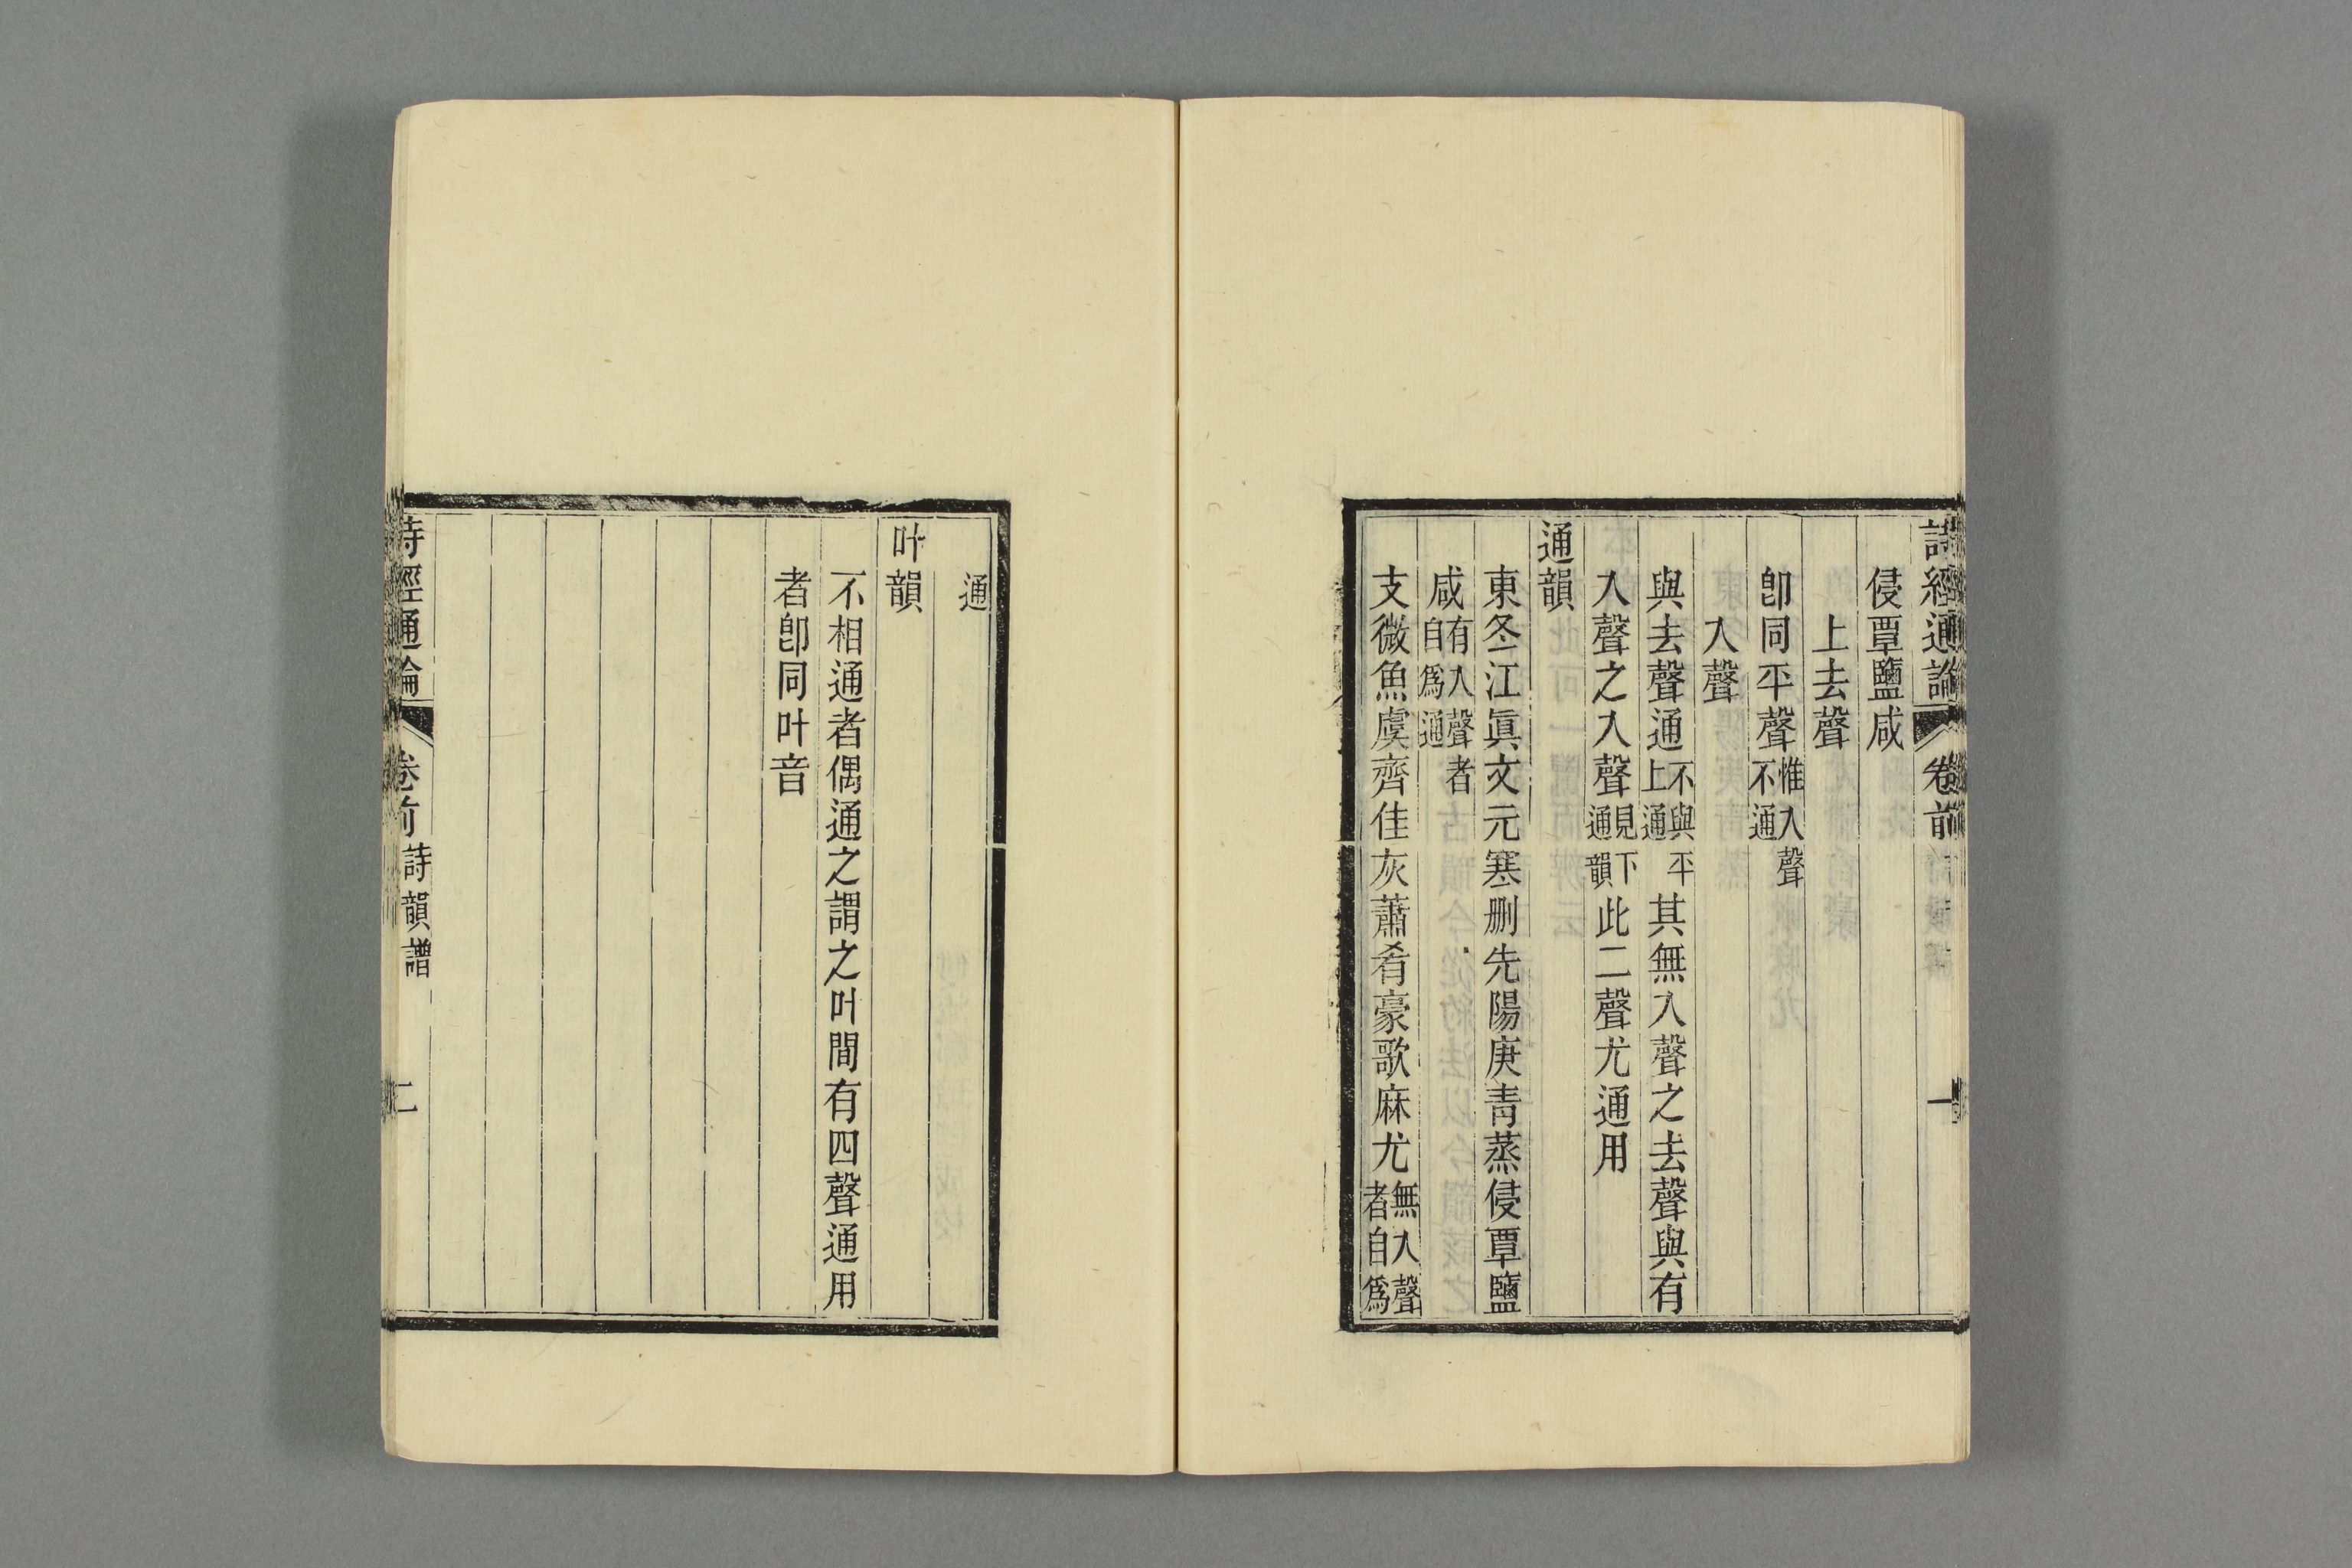 詩經通論 卷前 一
侵覃鹽咸
上去聲
卽同平聲惟入聲不通
入聲
與去聲通不與平上通其無入聲之去聲與有
入聲之入聲見下通韻此二聲尤通用
通韻
東冬江眞文元寒刪先陽庚靑蒸侵覃鹽
咸有入聲者自爲通
支微魚虞齊佳灰蕭肴豪歌麻尤無入聲者自爲
通
叶韻
不相通者偶通之謂之叶間有四聲通用
者卽同叶音
詩經通論 卷前 詩韻譜 二